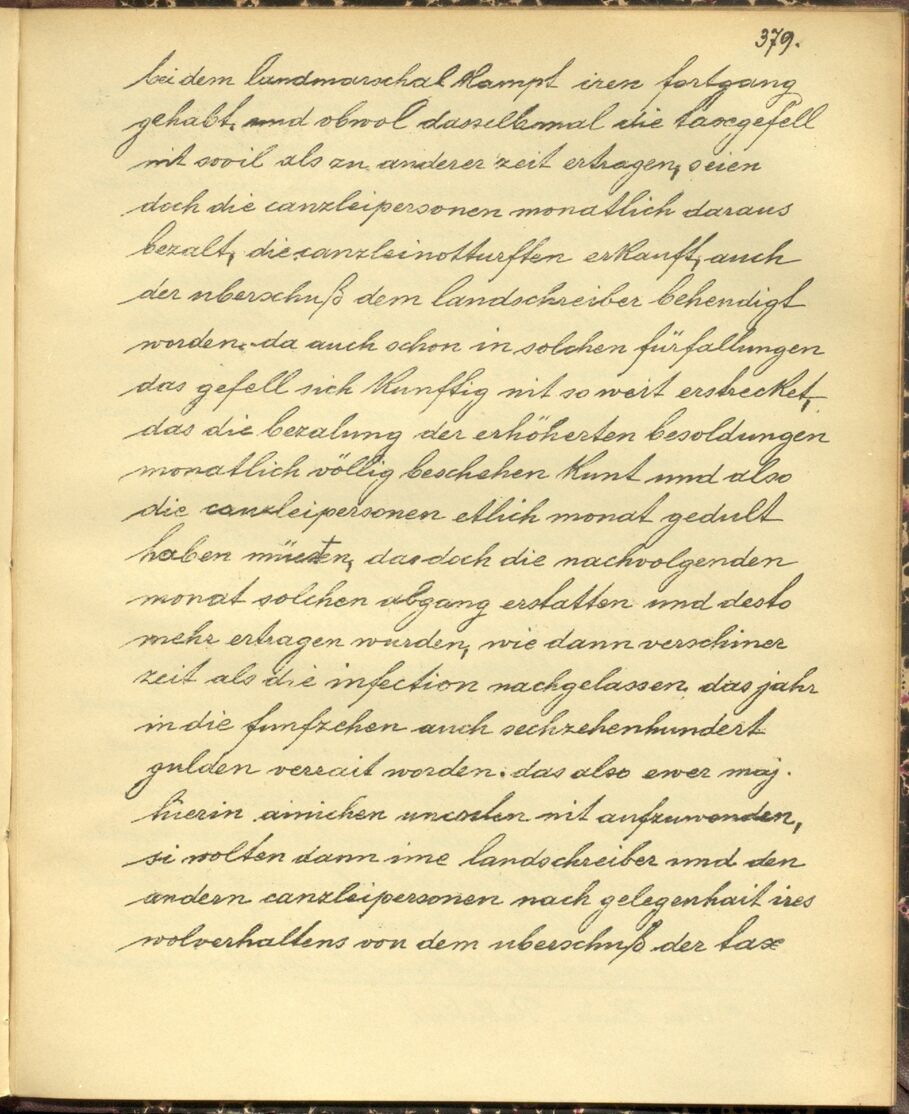 379.
bei dem landmarschalkampt iren fortgang
gehabt, und obwol dasselbmal die taxgefell
nit sovil als zu anderer zeit ertragen, seien
doch die canzleipersonen monatlich daraus
bezalt, die canzleinotturften erkauft, auch
der uberschuß dem landschreiber behendigt
worden. da auch schon in solchen fürfallungen
das gefell sich kunftig nit so weit erstrecket,
das die bezalung der erhöherten besoldungen
monatlich völlig beschehen kunt und also
die canzleipersonen etlich monat gedult
haben müesten, das doch die nachvolgenden
monat solchen abgang erstatten und desto
mehr ertragen wurden, wie dann verschiner
zeit als die infection nachgelassen, das jahr
in die funfzehen auch sechzehenhundert
gulden verrait worden. das also ewer maj.
hierin ainichen uncosten nit aufzuwenden,
si wolten dann ime landschreiber und den
andern canzleipersonen nach gelegenhait ires
wolverhaltens von dem uberschuß der tax